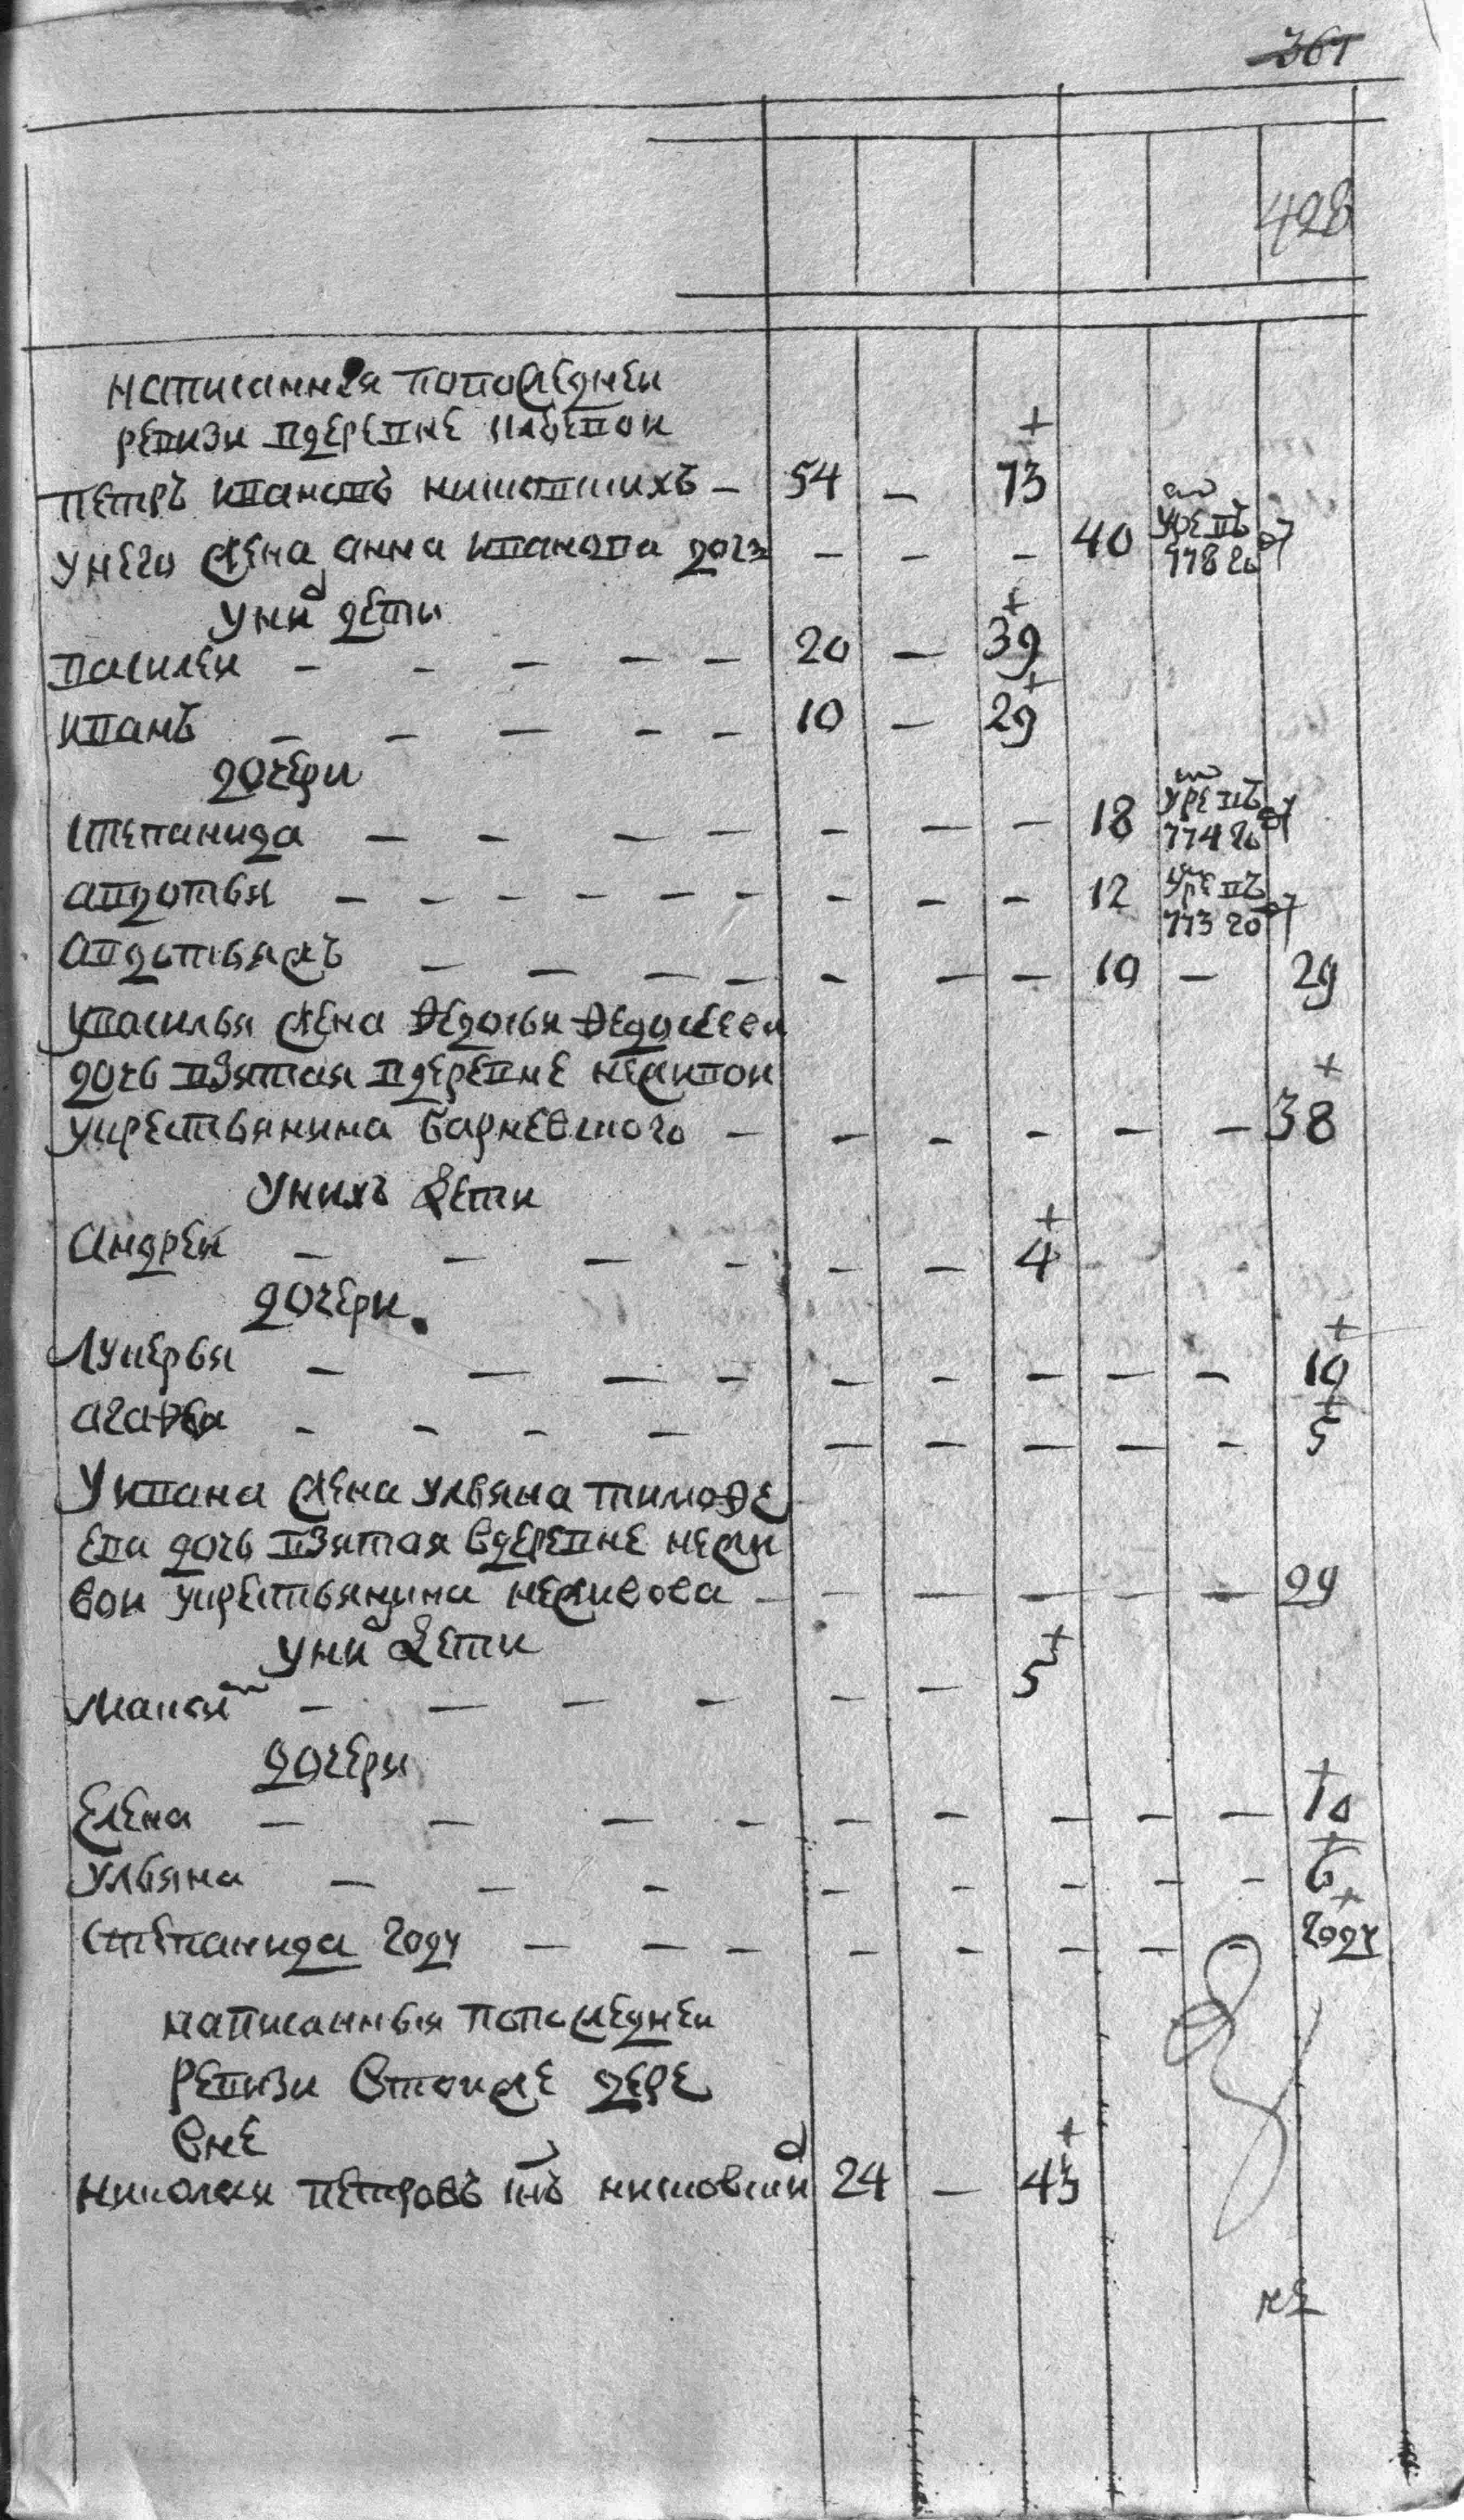 361
428
написанныя попоследнеи
ревизи вдеревне
Петръ Ивановъ — 54 — 73
унего жена анна иванова дочь — — — 40 умре въ 778 го
уних дети
Василеи — — — — — 20 — 39
иванъ — — — — — 10 — 29
дочери
степанида — — — — — — — 18 умре въ 774 го
авдотья — — — — — — — — — 12 умре въ 773 го
авдотьяжъ — — — — — — — 10 — 29
увасилья жена Федосья Федосеева
дочь взятая вдеревне неживои
укрестьянина барневского — — — — — — 38
унихъ дети
андреи — — — — — — 4
дочери
Лукерья — — — — — — — — — 19
агафья — — — — — — — — — 5
уивана жена ульяна тимофе
ева дочь взятая вдеревне нежи
вои укрестьянина неживова — — — — — — 29
уних дети
— — — — — — 5
дочери
елена — — — — — — — — — 10
ульяна — — — — — — — — 6
степанида году — — — — — — — — году
написанныя попоследнеи
ревизи втоиже дере
вне
николаи петровъ снъ 24 — 43